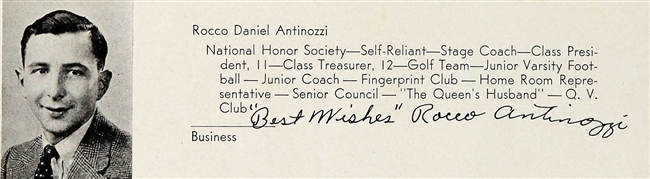 Rocco Daniel Antinozzi
National Honor Society—Self-Reliant—Stage Coach—Class Presi-
dent, 11—Class Treasurer, 12—Golf Team—Junior Varsity Foot-
ball — Junior Coach — Fingerprint Club — Home Room Repre-
sentative — Senior Council — "The Queen's Husband" — Q. V.
Club "Best Wishes" Rocco Antinozzi
Business